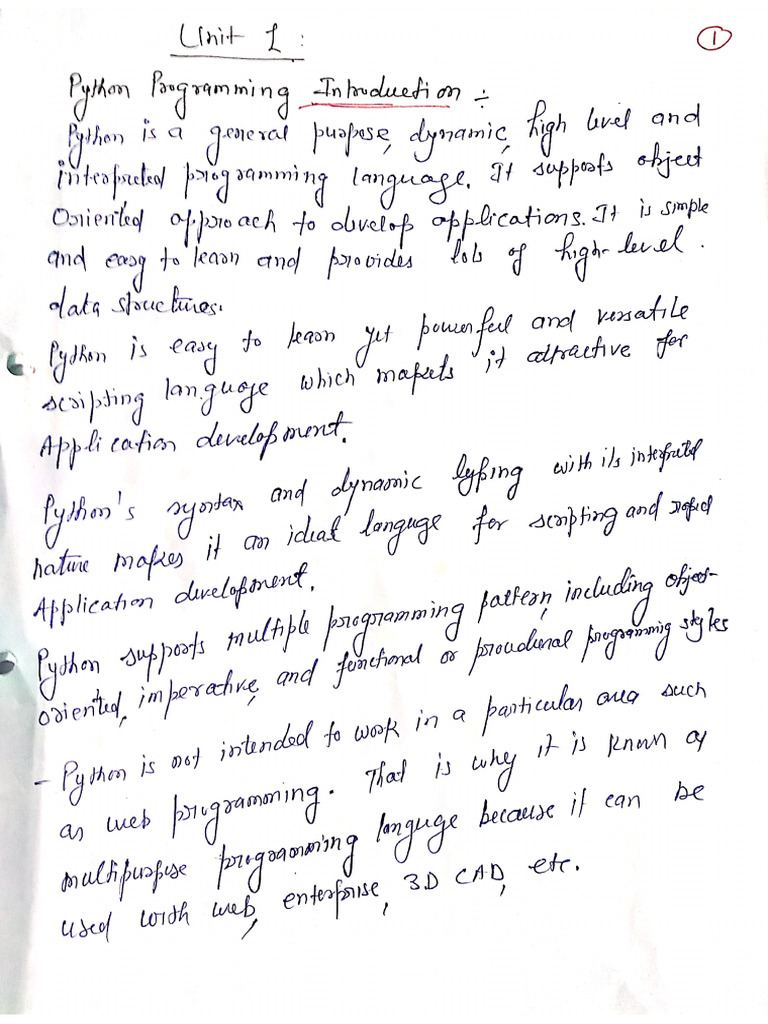 Unit 1 :
1
Python Programming Introduction ÷
Python is a general purpose, dynamic, high level and
interpreted programming language. It supports object
oriented approach to develop applications. It is simple
and easy to learn and provides lots of high-level.
data structures.
Python is easy to learn yet powerful and versatile
scripting language which makets it attractive for
Application development.
Python's syntax and dynamic typing with its
nature makes it an ideal languge for scripting and
Application development.
Python supports multiple programming pattern, including object-
oriented, imperative, and functional or programming styles
- Python is not intended to work in a particular area such
as web programming. That is why it is known as
multipurpose programming languge because it can be
used with web, enterprise, 3D CAD, etc.